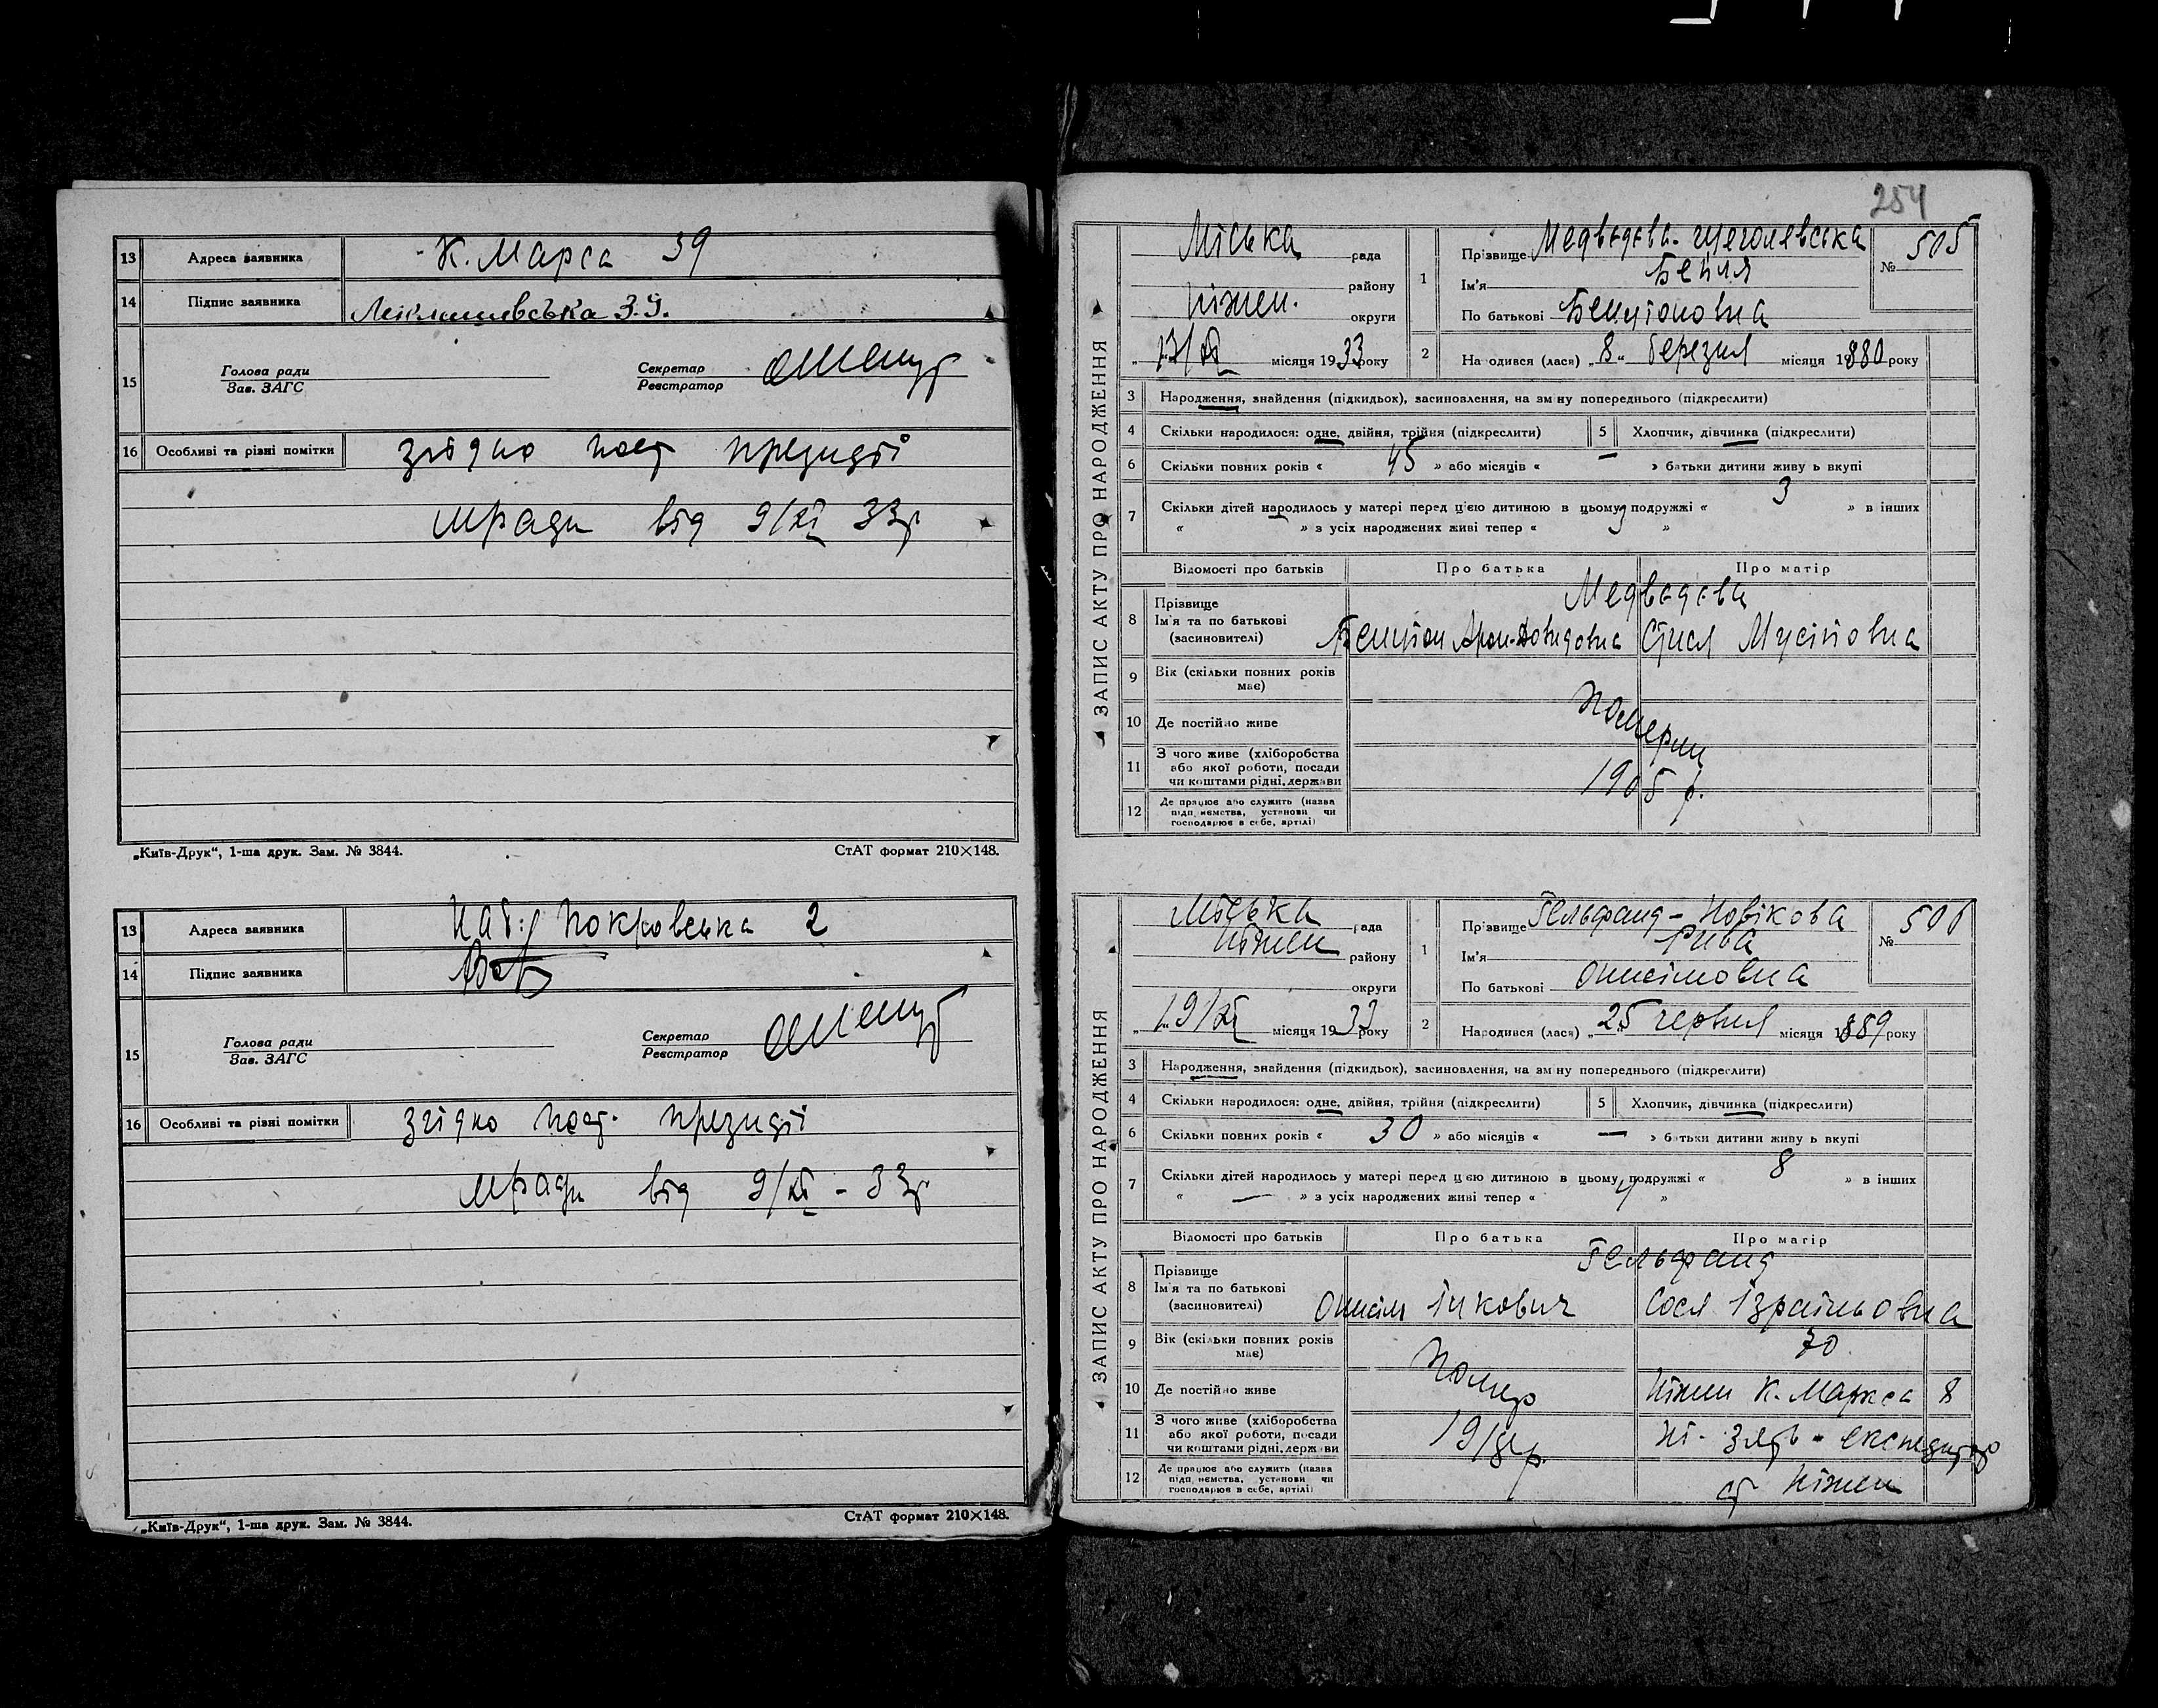 13 Адреса заявника К. Марса 39
14 Підпис заявника
15 Голова ради Секретар
Зав. ЗАГС Реєстратор
16 Особливі та різні помітки згідно пост президії
мради від 9/XI 33р
„Київ-Друк“, 1-ша друк. Зам. № 3844. СтАТ формат 210×148.
13 Адреса заявника Наб: Покровська 2
14 Підпис заявника
15 Голова ради Секретар
Зав. ЗАГС Реєстратор
16 Особливі та різні помітки згідно пост. президії
мради від 9/XI - 33р
„Київ-Друк“, 1-ша друк. Зам. № 3844. СтАТ формат 210×148.
254
ЗАПИС АКТУ ПРО НАРОДЖЕННЯ
Міська рада
району
Ніжен. округи
„17/XI місяця 1933 року
1 Прізвище Медвєдєва-Щеголевська
Ім'я Бейля
По батькові Бенціоновна
№ 505
2 Народився (лася) „8„ березня місяця 1880 року
3 Народження, знайдення (підкидьок), засиновлення, на зміну попереднього (підкреслити)
4 Скільки народилося: одне, двійня, трійня (підкреслити) 5 Хлопчик, дівчинка (підкреслити)
6 Скільки повних років « 45 » або місяців « — » батьки дитини живуть вкупі
7 Скільки дітей народилось у матері перед цією дитиною в цьому подружжі « 3 » в інших
« — » з усіх народжених живі тепер « 3 »
Відомості про батьків Про батька Про матір
8 Прізвище Медвєдєва
Ім'я та по батькові
(засиновителі) Бенціон Арон-Довидовна Стися Мусіповна
9 Вік (скільки повних років
має)
10 Де постійно живе Померли
11 З чого живе (хліборобства
або якої роботи, посади 1905 р.
чи коштами рідні, держави
12 Де працює або служить (назва
підприємства, установи чи
господарює в себе, артілі)
ЗАПИС АКТУ ПРО НАРОДЖЕННЯ
Міська рада
Ніжен району
округи
„19/XI місяця 1933 року
1 Прізвище Гельфанд-Новікова
Ім'я Рива
По батькові Онисімовна
№ 506
2 Народився (лася) „25 червня місяця 1889 року
3 Народження, знайдення (підкидьок), засиновлення, на зміну попереднього (підкреслити)
4 Скільки народилося: одне, двійня, трійня (підкреслити) 5 Хлопчик, дівчинка (підкреслити)
6 Скільки повних років « 30 » або місяців « — » батьки дитини живуть вкупі
7 Скільки дітей народилось у матері перед цією дитиною в цьому подружжі « 8 » в інших
« — » з усіх народжених живі тепер « 4 »
Відомості про батьків Про батька Про матір
8 Прізвище Гельфанд
Ім'я та по батькові
(засиновителі) Онисім Іцкович Сося Ізраїльовна
9 Вік (скільки повних років 70
має)
10 Де постійно живе Помер Ніжин К. Маркса 8
11 З чого живе (хліборобства
або якої роботи, посади
чи коштами рідні, держави
12 Де працює або служить (назва
підприємства, установи чи ст Ніжен
господарює в себе, артілі)